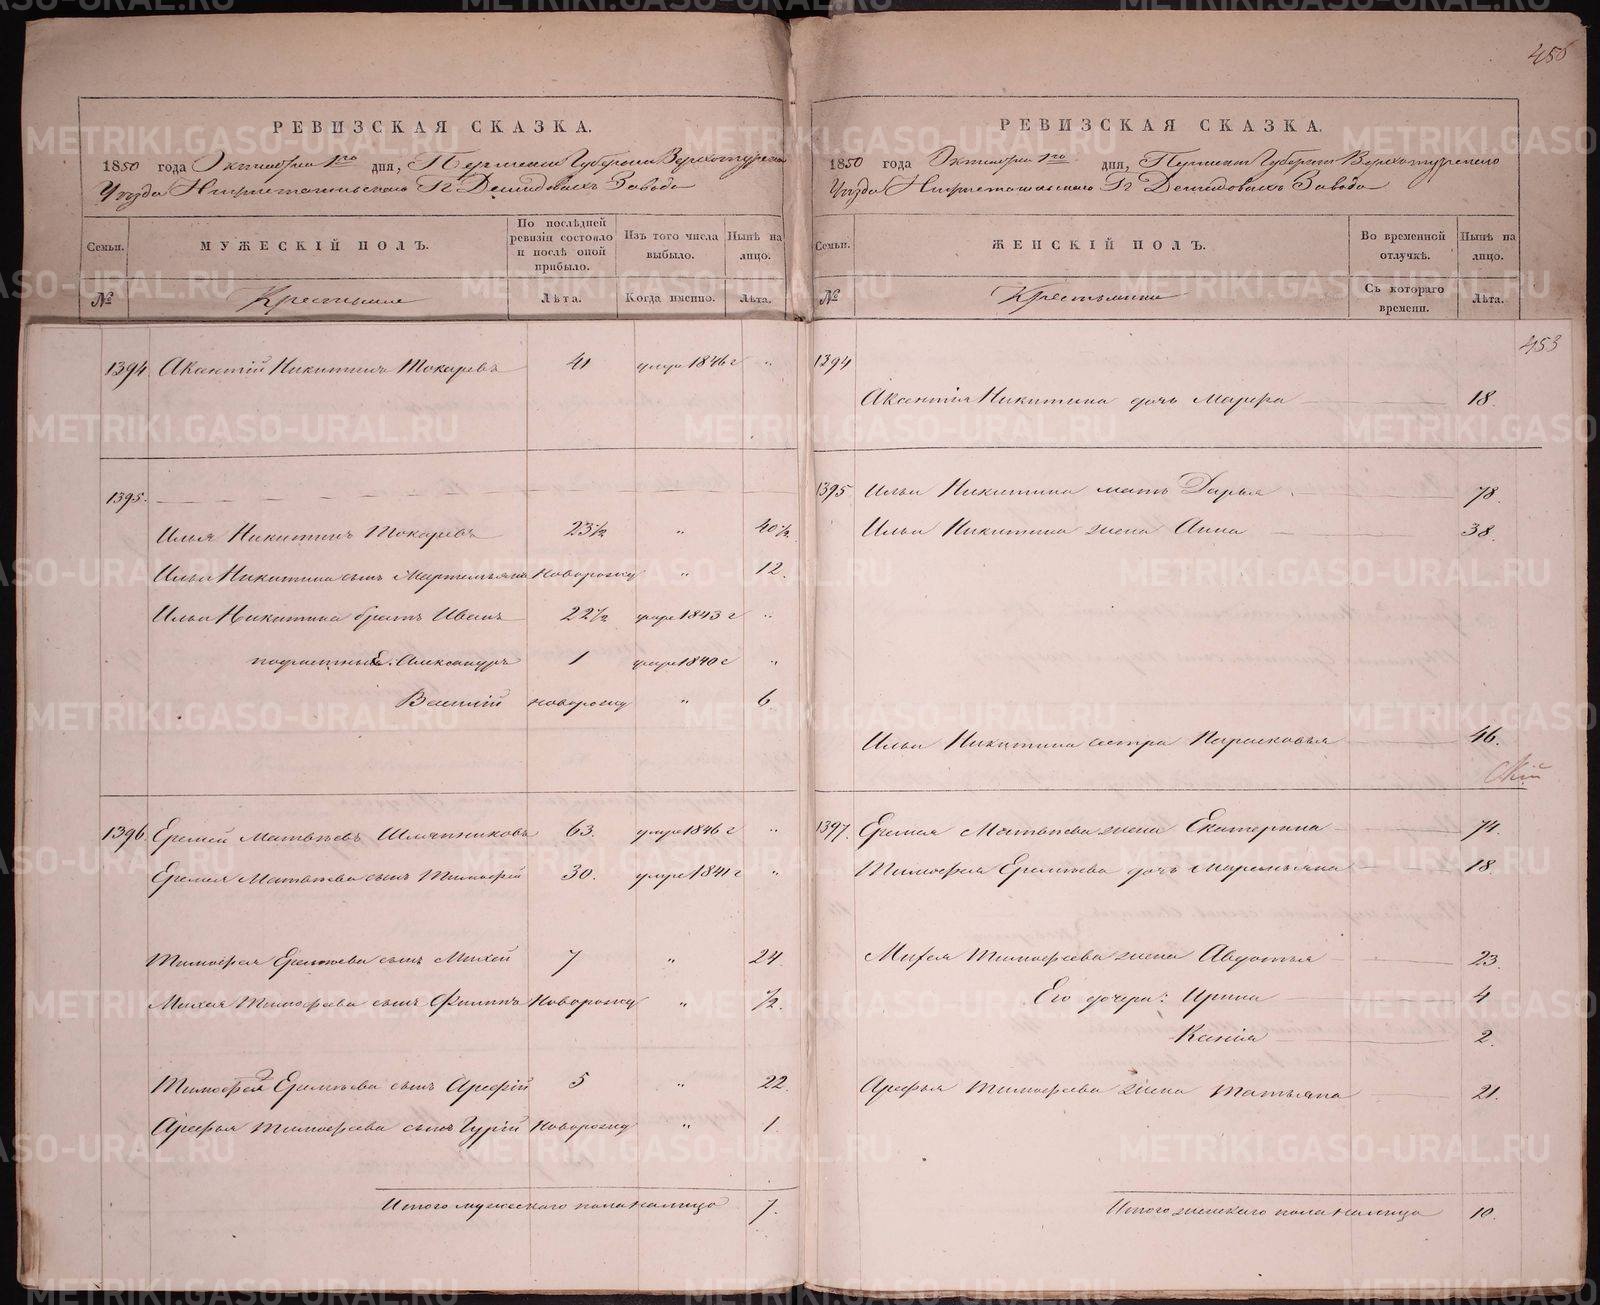 456
РЕВИЗСКАЯ СКАЗКА.
1850 года Октября 1го дня, Пермской Губернии Верхотурскаго
Уезда Нижнетагильскаго Гг Демидовыхъ Завода
Семьи.
МУЖЕСКІЙ ПОЛЪ.
По послѣдней ревизіи состояло и послѣ оной прибыло.
Изъ того числа выбыло.
Нынѣ на лицо.
№
Крестьяне
Лѣта.
Когда именно.
Лѣта.
1394 Аксентій Никитинъ Токаревъ 41 умре 1846 г "
1395.
Илья Никитинъ Токаревъ 23 1/2 " 40 1/2
Ильи Никитина сынъ Мартемьянъ новорожд " 12.
Ильи Никитина братъ Иванъ 22 1/2 умре 1843 г "
Александръ 1 умре 1840 г "
Василій новорожд " 6.
1396. Еремей Матвѣевъ Шляпниковъ 63. умре 1846 г "
Еремея Матвѣева сынъ Тимофей 30. умре 1841 г "
Тимофея Еремѣева сынъ Михей 7 " 24.
Михея Тимофеева сынъ Филипъ новорожд " 1/2.
Тимофея Еремѣева сынъ Арефій 5 " 22.
Арефья Тимофеева сынъ Гурій новорожд " 1.
Итого мужескаго пола налицо 7.
РЕВИЗСКАЯ СКАЗКА.
1850 года Октября 1го дня, Пермской Губерніи Верхотурскаго
Уезда Нижнетагильскаго Гг Демидовыхъ Завода
Семьи.
ЖЕНСКІЙ ПОЛЪ.
Во временной отлучкѣ.
Нынѣ на лицо.
№
Крестьянки
Съ котораго времени.
Лѣта.
453
1394
Аксентія Никитина дочь Мавра 18.
1395 Ильи Никитина мать Дарья 78.
Ильи Никитина жена Анна 38.
Ильи Никитина сестра Парасковья 46.
1397. Еремея Матвѣева жена Екатерина 74.
Тимофея Еремѣева дочь Маремьяна 18.
Михея Тимофеева жена Авдотья 23.
Его дочери: Ирина 4
Ксенія 2.
Арефья Тимофеева жена Татьяна 21.
Итого женскаго пола налицо 10.
METRIKI.GASO-URAL.RU